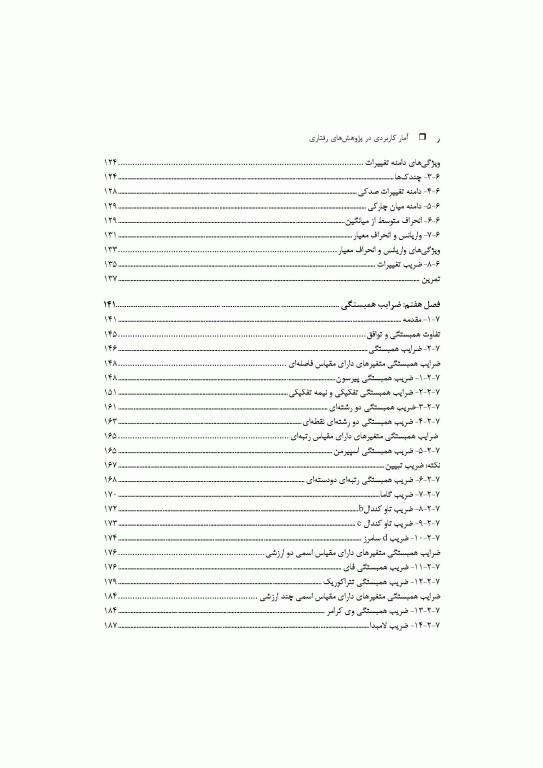 ر ❐ آمار کاربردی در پژوهش‌های رفتاری
ویژگی‌های دامنه تغییرات ۱۲۴
۳-۶- چندک‌ها ۱۲۴
۴-۶- دامنه تغییرات صدکی ۱۲۸
۵-۶- دامنه میان چارکی ۱۲۹
۶-۶- انحراف متوسط از میانگین ۱۲۹
۷-۶- واریانس و انحراف معیار ۱۳۱
ویژگی‌های واریانس و انحراف معیار ۱۳۳
۸-۶- ضریب تغییرات ۱۳۵
تمرین ۱۳۷
فصل هفتم: ضرایب همبستگی ۱۴۱
۱-۷- مقدمه ۱۴۱
تفاوت همبستگی و توافق ۱۴۵
۲-۷- ضرایب همبستگی ۱۴۶
ضرایب همبستگی متغیرهای دارای مقیاس فاصله‌ای ۱۴۸
۱-۲-۷- ضریب همبستگی پیرسون ۱۴۸
۲-۲-۷- ضرایب همبستگی تفکیکی و نیمه تفکیکی ۱۵۱
۳-۲-۷-ضریب همبستگی دو رشته‌ای ۱۶۱
۴-۲-۷- ضریب همبستگی دو رشته‌ای نقطه‌ای ۱۶۳
ضرایب همبستگی متغیرهای دارای مقیاس رتبه‌ای ۱۶۵
۵-۲-۷- ضریب همبستگی اسپیرمن ۱۶۵
نکته: ضریب تبیین ۱۶۷
۶-۲-۷- ضریب همبستگی رتبه‌ای دودسته‌ای ۱۶۸
۷-۲-۷- ضریب گاما ۱۷۰
۸-۲-۷- ضریب تاو کندال b ۱۷۲
۹-۲-۷- ضریب تاو کندال c ۱۷۳
۱۰-۲-۷- ضریب d سامرز ۱۷۴
ضرایب همبستگی متغیرهای دارای مقیاس اسمی دو ارزشی ۱۷۶
۱۱-۲-۷- ضریب همبستگی فای ۱۷۶
۱۲-۲-۷- ضریب همبستگی تتراکوریک ۱۷۹
ضرایب همبستگی متغیرهای دارای مقیاس اسمی چند ارزشی ۱۸۴
۱۳-۲-۷- ضریب همبستگی وی کرامر ۱۸۴
۱۴-۲-۷- ضریب لامبدا ۱۸۷